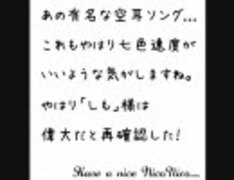 あの有名な空耳ソング...
これもやはり七色速度が
いいような気がしますね。
やはり「しも」様は
偉大だと再確認した!
Have a nice NicoNico...